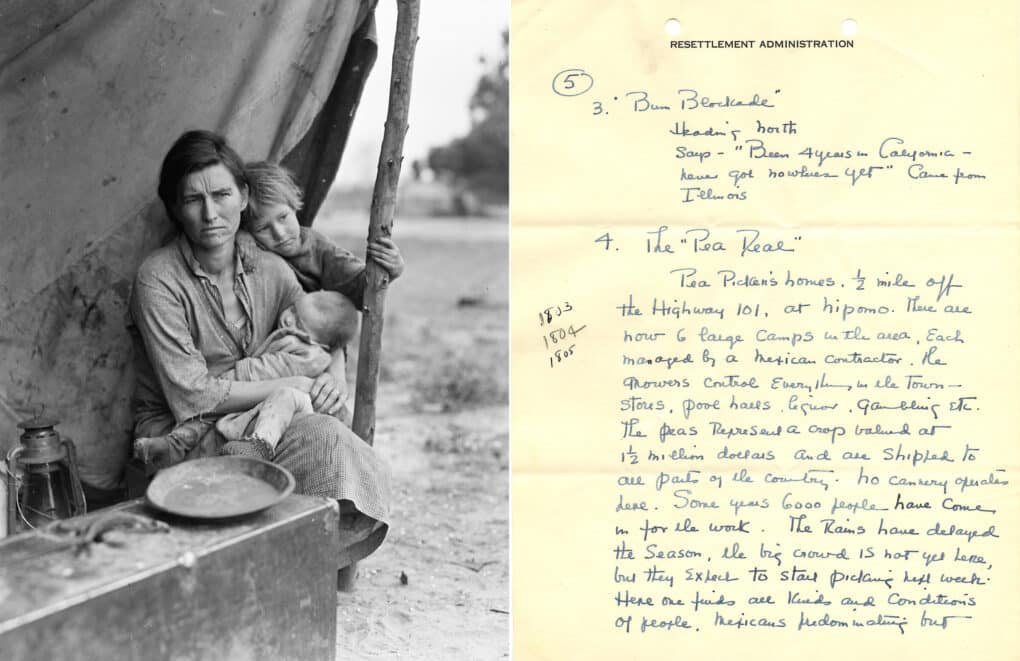 RESETTLEMENT ADMINISTRATION
5
3. "Bum Blockade"
Heading North
Says - "Been 4 years in California -
never got nowheres yet" Came from
Illinois
4. The "Pea Deal"
Pea Picker's homes. ½ mile off
the Highway 101, at Nipomo. There are
now 6 large camps in the area, Each
managed by a Mexican contractor. The
Growers control Everything in the Town -
stores, pool halls, liquor, Gambling Etc.
The peas Represent a crop valued at
1½ million dollars and are Shipped to
all parts of the country. No cannery operates
here. Some years 6000 people have come
in for the work. The Rains have delayed
the Season, the big crowd IS not yet here,
but they Expect to start picking next week.
Here one finds all Kinds and Conditions
of people, Mexicans predominating but
1803
1804
1805